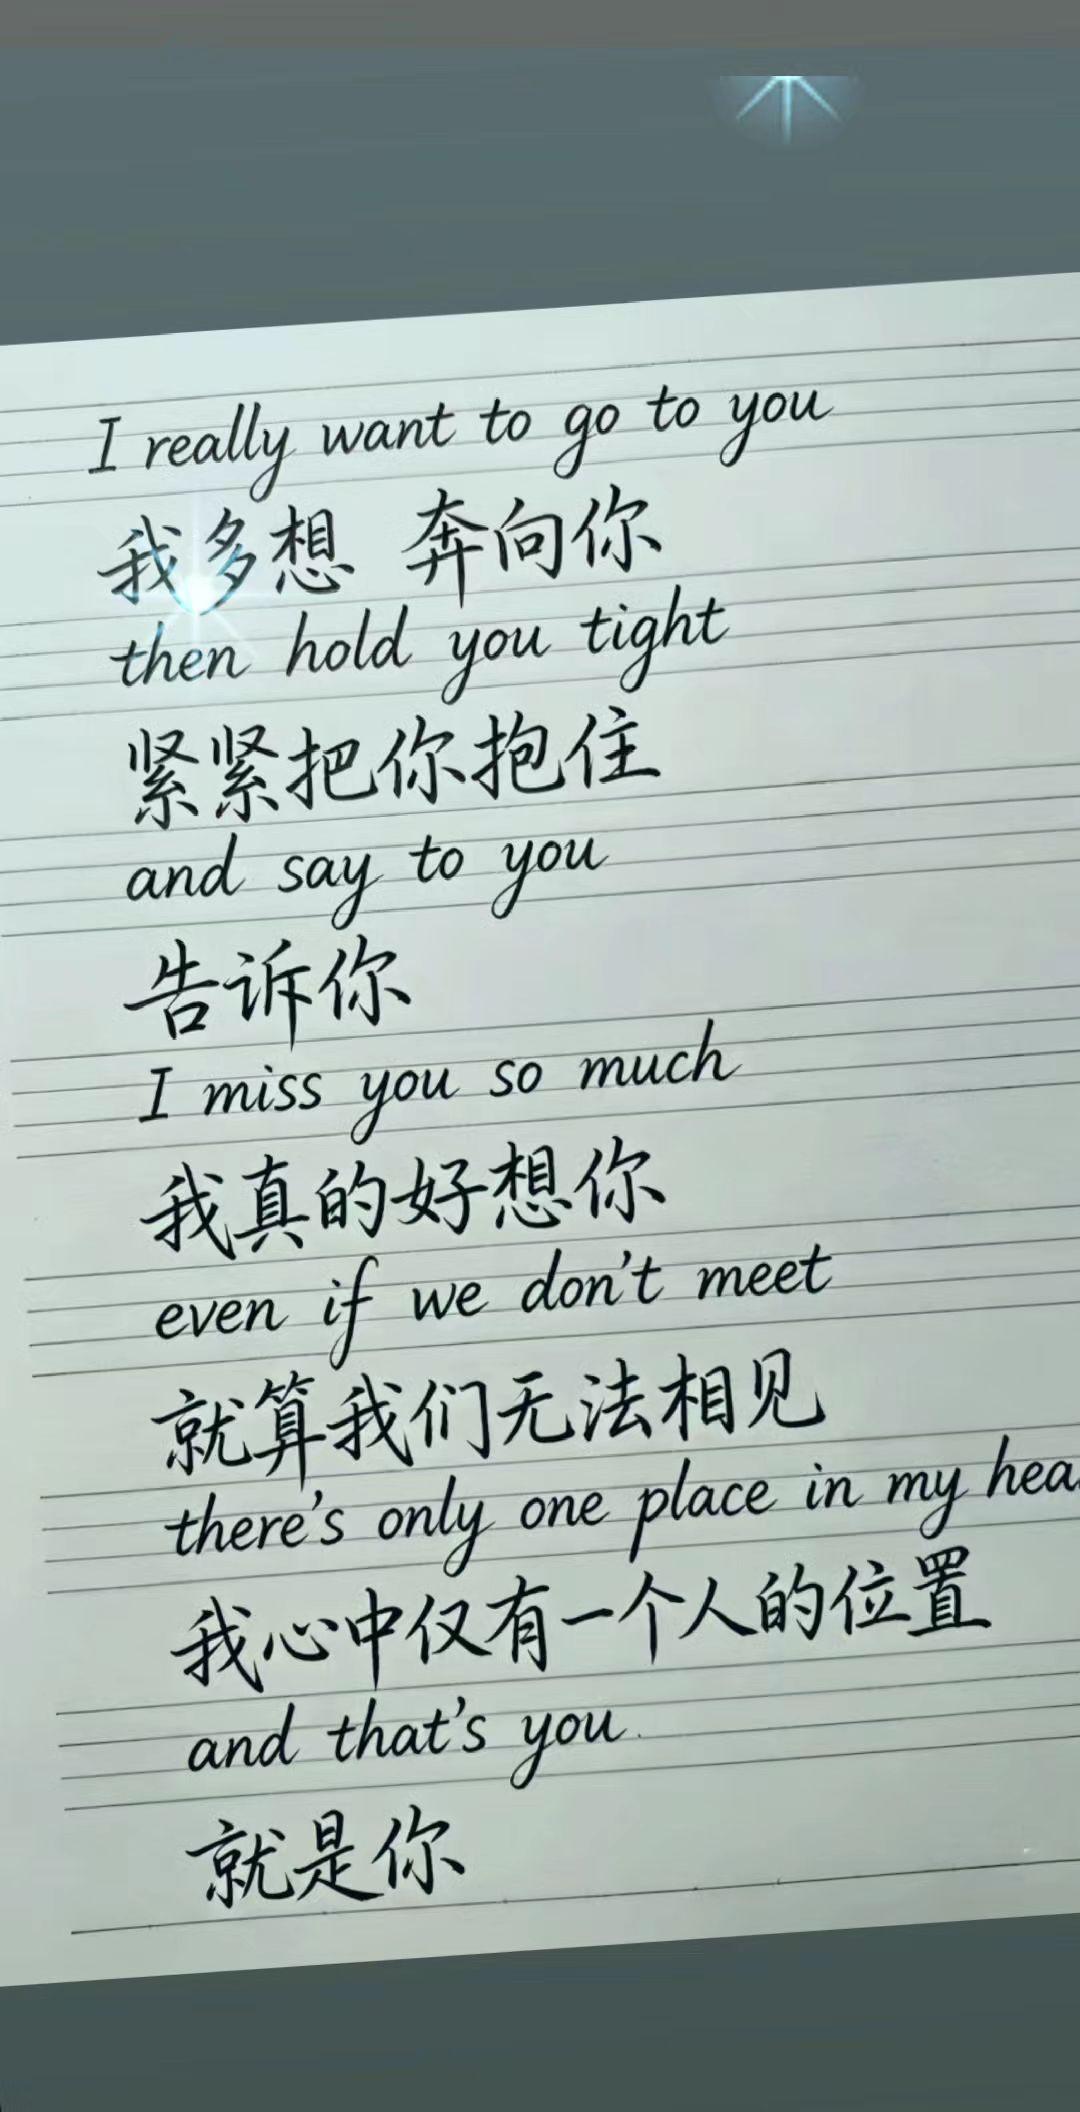 I really want to go to you
我多想 奔向你
then hold you tight
紧紧把你抱住
and say to you
告诉你
I miss you so much
我真的好想你
even if we don't meet
就算我们无法相见
there's only one place in my
我心中仅有一个人的位置
and that's you
就是你